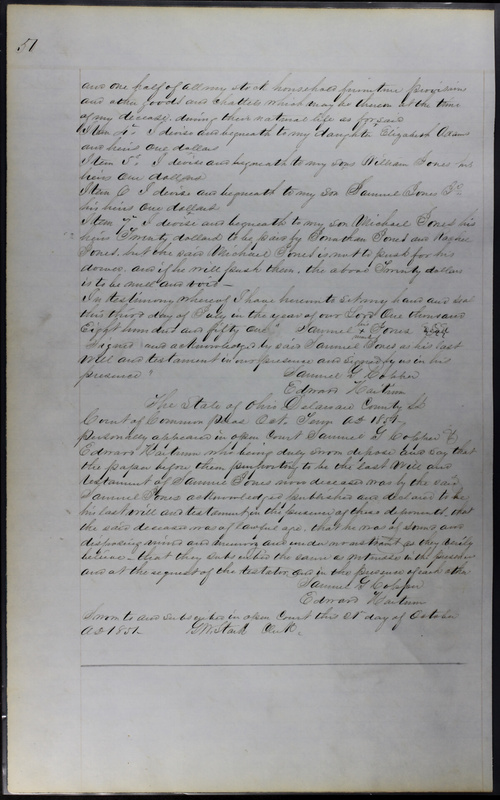 51
and one half of all my stock household furniture provisions
and other goods and chattels which may be thereon at the time
of my decease, during their natural life as aforesaid
Item 4th I devise and bequeath to my daughter Elizabeth
and heirs One dollar
Item 5th I devise and bequeath to my son William Jones his
heirs One dollar
Item 6 I devise and bequeath to my son Samuel Jones
his heirs One dollar
Item 7th I devise and bequeath to my son Michael Jones his
heirs Twenty dollars to be paid by Jonathan Jones and
Jones, but the said Michael Jones is not to push for his
and if he will push them, the above Twenty dollars
is to be null and void —
In testimony whereof I have hereunto set my hand and seal
this first day of July in the year of our Lord One thousand
Eight hundred and fifty one. Samuel x Jones seal
Signed and acknowledged by said Samuel Jones as his last
will and testament in our presence and signed by us in his
presence
Samuel G
Edward
The State of Ohio, Delaware County SS
Court of Common pleas Oct. Term AD 1851
personally appeared in open Court Samuel G &
Edward who being duly sworn depose and say that
the paper before them purporting to be the last will and
testament of Samuel Jones now deceased was by the said
Samuel Jones acknowledged published and declared to be
his last will and testament in the presence of these deponents, that
the said deceased was of lawful age, that he was of sound and
disposing mind and memory and under no restraint as they verily
believe – that they subscribed the same as witnesses in the presence
and at the request of the testator, and in the presence of each other
Samuel G
Edward
Sworn to and subscribed in open Court this day of October
AD 1851 Clerk.